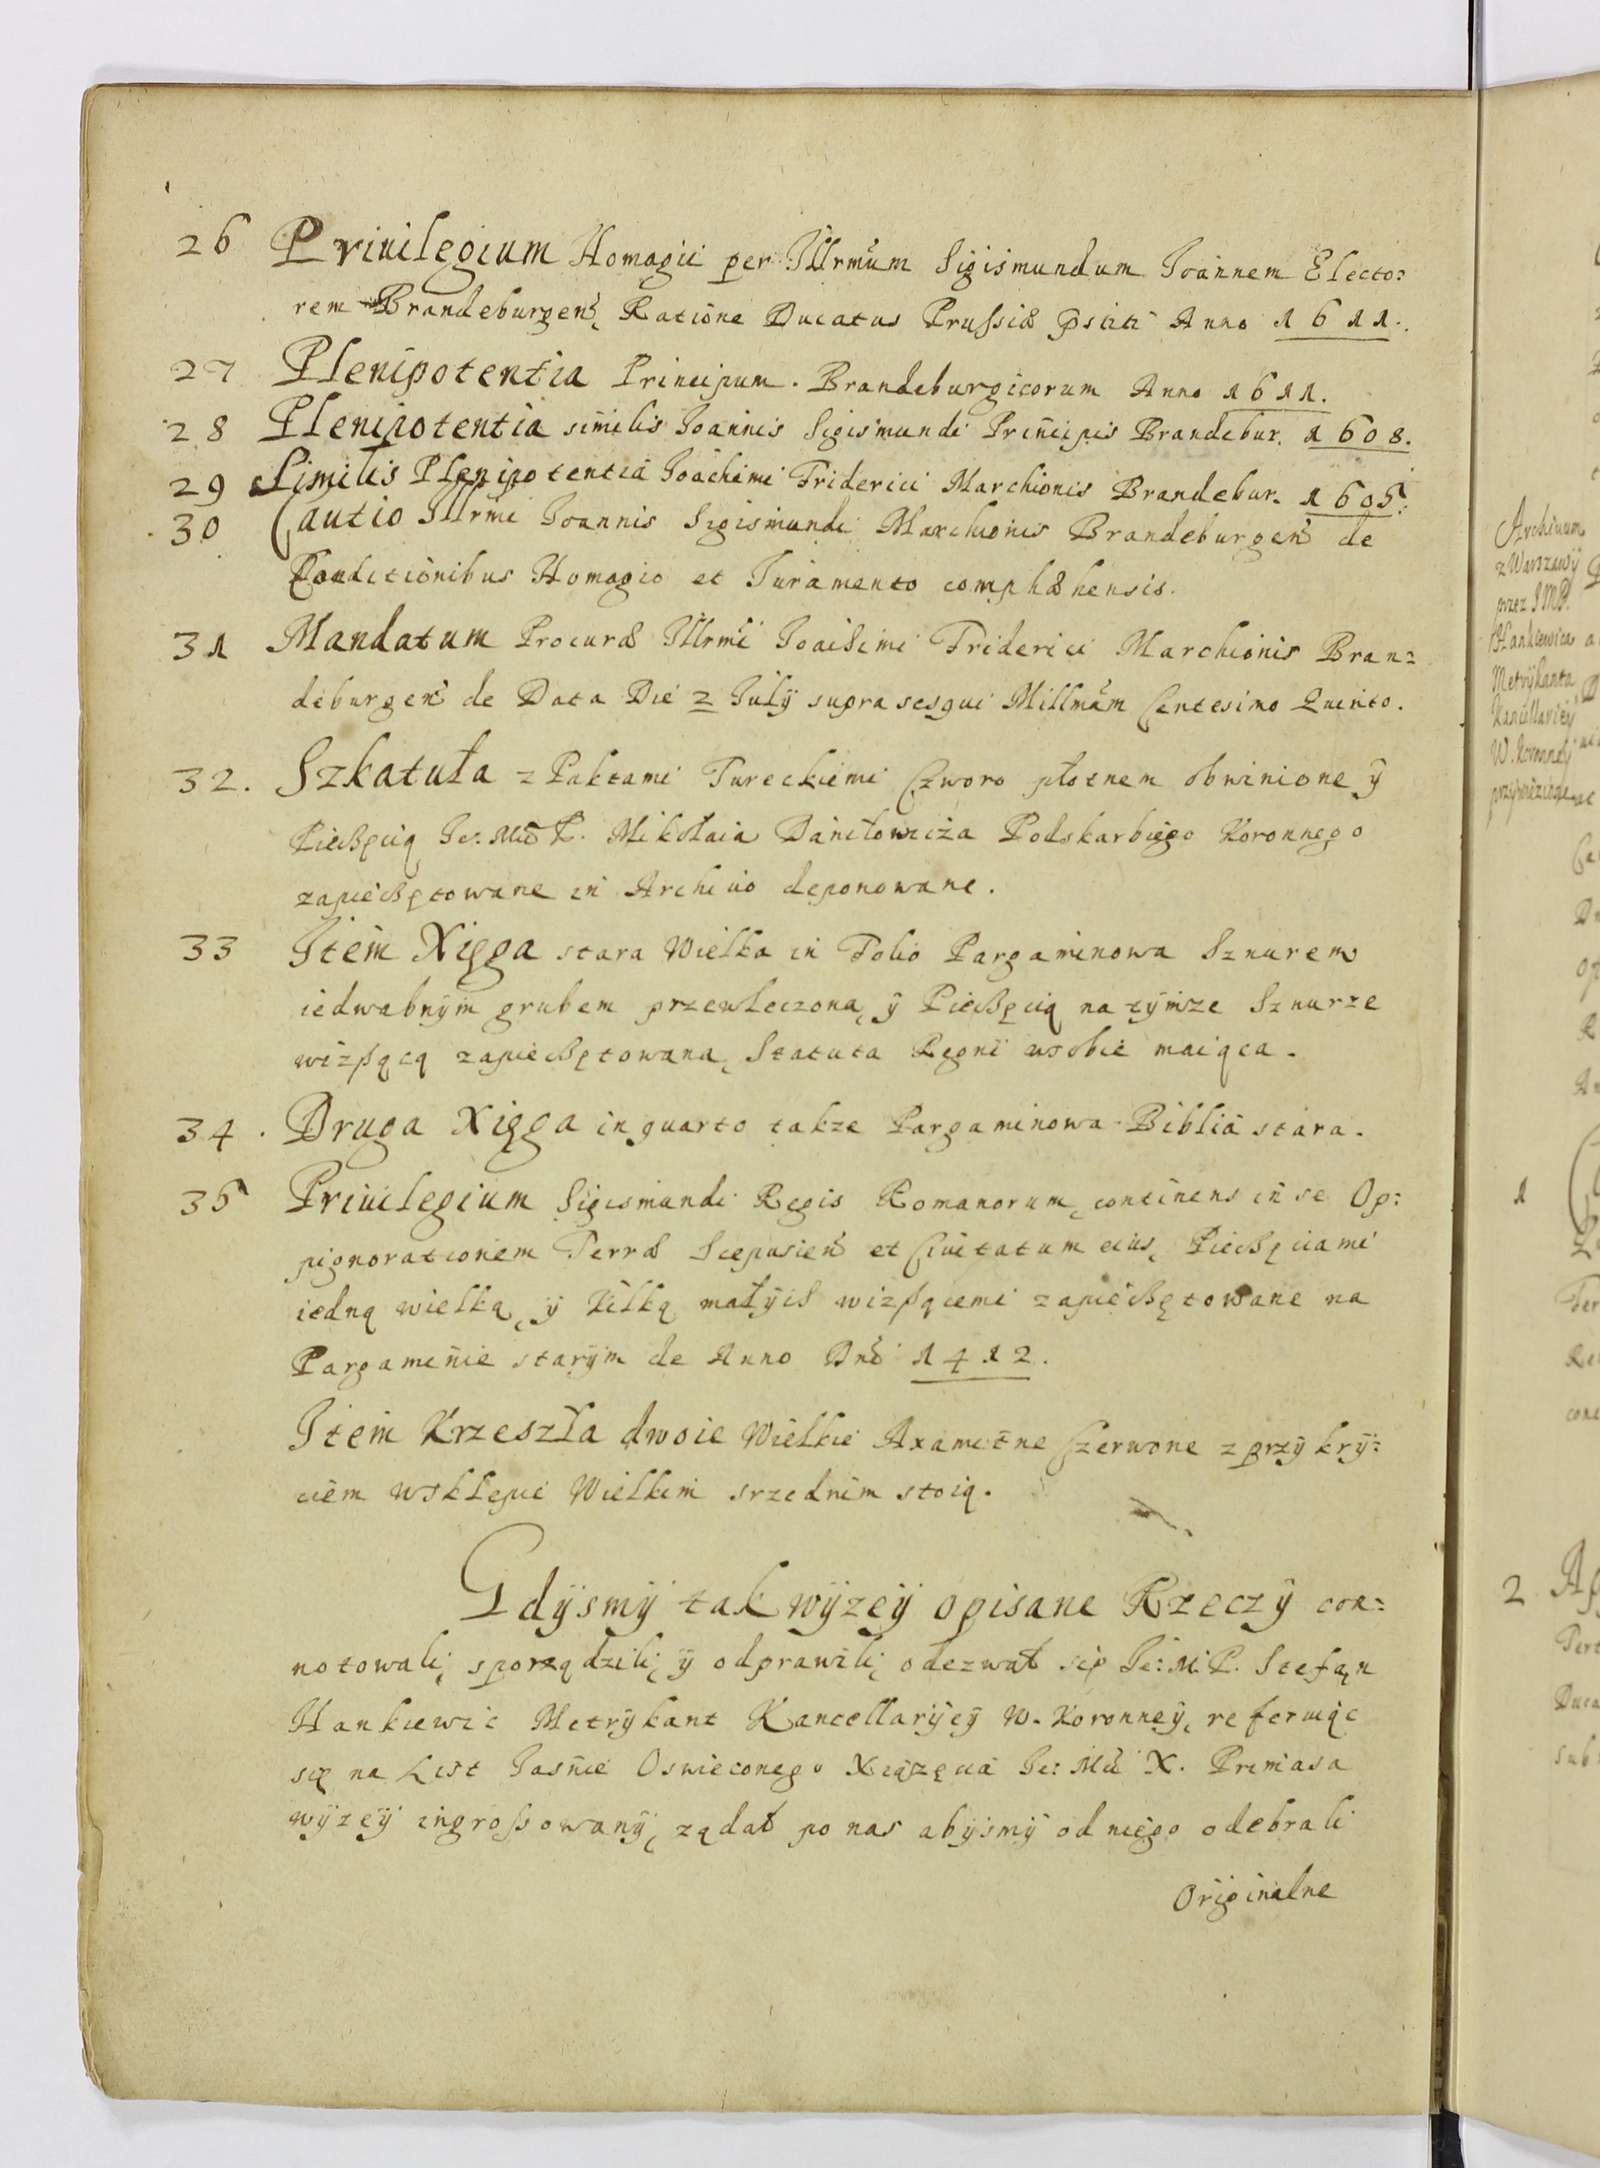 26 Priuilegium Homagii per Illrmum Sigismundum Joannem Electo=
rem Brandeburgen, Ratione Ducatus Prussiæ pstiti Anno 1611.
27 Plenipotentia Principum Brandeburgicorum Anno 1611.
28 Plenipotentia similis Joannis Sigismundi Principis Brandebur. 1608.
29 Similis Plenipotentia Joachimi Friderici Marchionis Brandebur. 1605.
30 Cautio Illrmi Joannis Sigismundi Marchionis Brandeburgen de
Conditionibus Homagio et Juramento comphæhensis.
31 Mandatum Procuræ Illrmi Joachimi Friderici Marchionis Bran=
deburgen de Data Die 2 July supra sesqui Millmam Centesimo Quinto.
32. Szkatuła z Paktami Tureckiemi Czworo płotnem obwinione ÿ
Pieczęcią Je: Mci P. Mikołaia Daniłowicza Podskarbiego Koronnego
zapieczętowane in Archiuo deponowane.
33 Item Xięga stara Wielka in Folio Pargaminowa Sznurem
iedwabnÿm grubem przewleczona, ÿ Pieczęcią na tÿmze Sznurze
wiszącą zapieczętowana, Statuta Regni wsobie maiąca.
34. Druga Xięga in quarto takze Pargaminowa Biblia stara.
35 Priuilegium Sigismundi Regis Romanorum, continens in se Op=
pignorationem Terræ Scepusien et Ciuitatum eius, Pieczęciami
iedną wielką, ÿ kilką małÿch wiszącemi zapieczętowane na
Pargaminie starÿm de Anno Dni 1412.
Item Krzeszła dwoie Wielkie Axamitne Czerwone z przÿkrÿ=
ciem wsklepie Wielkim srzednim stoią.
Gdÿsmÿ tak wÿzeÿ opisane Rzeczÿ con=
notowali, sporządzili, ÿ odprawili, odezwał się Je: M. P. Stefan
Hankiewic Metrÿkant Kancellarÿeÿ W. Koronneÿ, referuiąc
się na List Jasnie Oswieconego Xiązęcia Je: Mci X. Primasa
wÿzeÿ ingrossowanÿ, ządał po nas abÿsmÿ od niego odebrali
Originalne
Archiuum
z Warszawÿ
przez JMP.
Hankiewica
Metrÿkanta
Kancellarieÿ
W. Koronneÿ
przÿwiezione
1
2